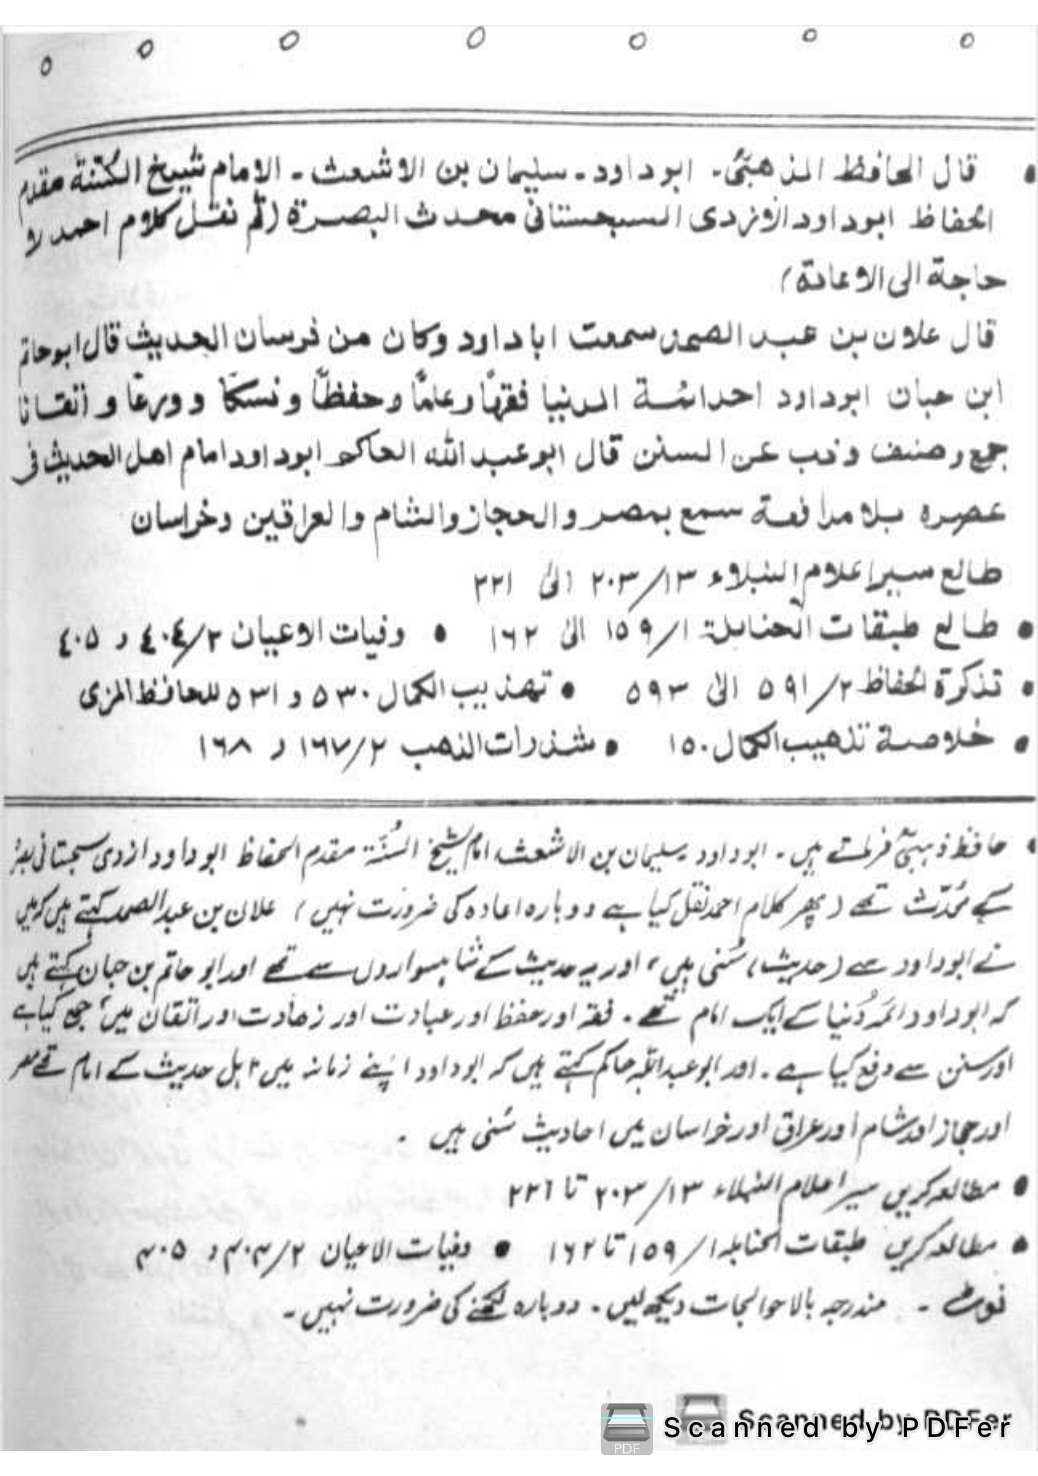 • قال الحافظ الذهبیؒ۔ ابوداود۔ سلیمان بن الاشعث۔ الامام شیخ السُّنّة مقدم
الحفاظ ابوداود الازدی السبحستانی محدث البصرة (ثم نقل کلام احمد لا
حاجة الی الاعادة)
قال علان بن عبد الصمد سمعت ابا داود وکان من فرسان الحدیث قال ابوحاتم
ابن حبان ابوداود احد ائمة الدنیا فقهًا وعلمًا وحفظًا ونسکًا وورعًا واتقانا
جمع وصنف وذب عن السنن قال ابوعبد الله الحاکم ابوداود امام اهل الحدیث فی
عصره بلا مدافعة سمع بمصر والحجاز والشام والعراقین وخراسان
طالع سیر اعلام النبلاء ۲۰۳/۱۳ الیٰ ۲۲۱
• طالع طبقات الحنابلة ۱۵۹/۱ الیٰ ۱۶۲ • وفیات الاعیان ٤٠٤/۲ و ٤٠۵
• تذکرة الحفاظ ۵۹۱/۲ الیٰ ۵۹۳ • تهذیب الکمال ۵۳۰ و ۵۳۱ للحافظ المزی
• خلاصة تذهیب الکمال ۱۵۰ • شذرات الذهب ۱۶۷/۲ و ۱۶۸
• حافظ ذہبیؒ فرماتے ہیں۔ ابوداود سلیمان بن الاشعث امام شیخ السُّنَّة مقدم الحفاظ ابوداود ازدی سجستانی بصرہ
کے محدّث تھے (پھر کلام احمد نقل کیا ہے دوبارہ اعادہ کی ضرورت نہیں) علان بن عبد الصمد کہتے ہیں کہ میں
نے ابوداود سے (حدیث) سُنی ہیں، اور یہ حدیث کے شاہسواروں سے تھے اور ابو حاتم بن حبان کہتے ہیں
کہ ابوداود ائمہ دُنیا کے ایک امام تھے۔ فقہ اور حفظ اور عبادت اور زھادت اور اتقان میں، جمع کیا ہے
اور سنن سے دفع کیا ہے۔ اور ابو عبد اللہ حاکم کہتے ہیں کہ ابوداود اپنے زمانہ میں اہل حدیث کے امام تھے مصر
اور حجاز اور شام اور عراق اور خراسان میں احادیث سُنی ہیں۔
• مطالعہ کریں سیر اعلام النبلاء ۲۰۳/۱۳ تا ۲۲۱
• مطالعہ کریں طبقات الحنابلہ ۱۵۹/۱ تا ۱۶۲ • وفیات الاعیان ۴۰۴/۲ و ۴۰۵
نوٹ ۔ مندرجہ بالا حوالجات دیکھ لیں۔ دوبارہ لکھنے کی ضرورت نہیں۔
Scanned by PDFer
Scanned by PDFer
PDF